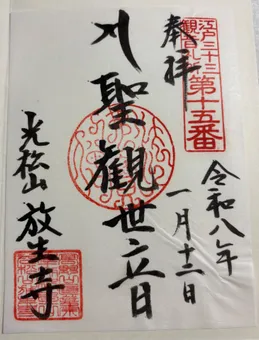 江戸三十三
観音札所
第十五番
奉拝
令和八年
一月十二日
聖観世音
光松山 放生寺